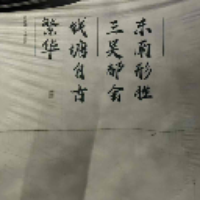 东南形胜
三吴都会
钱塘自古
繁华